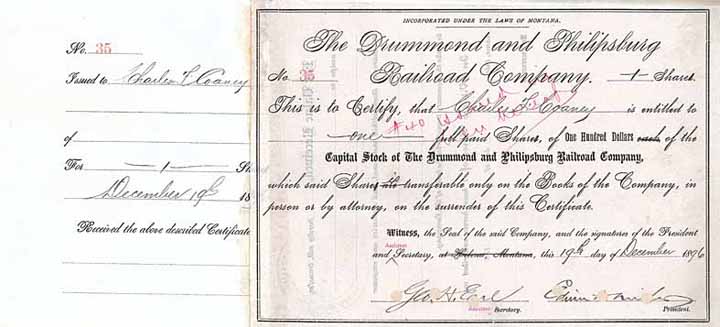 No. 35
Issued to Charles F. Coaney
of
For 1 Sh
December 19th 18
Received the above described Certificate
INCORPORATED UNDER THE LAWS OF MONTANA.
The Drummond and Philipsburg
No. 35 Railroad Company. 1 Shares.
This is to Certify, that Charles F. Coaney is entitled to
one full paid Shares, of One Hundred Dollars each, of the
Capital Stock of The Drummond and Philipsburg Railroad Company,
which said Shares are transferable only on the Books of the Company, in
person or by attorney, on the surrender of this Certificate.
Witness, the Seal of the said Company, and the signatures of the President
Assistant
and Secretary, at Helena, Montana, this 19th day of December 1896
Geo. H. Earl
Assistant Secretary. President.